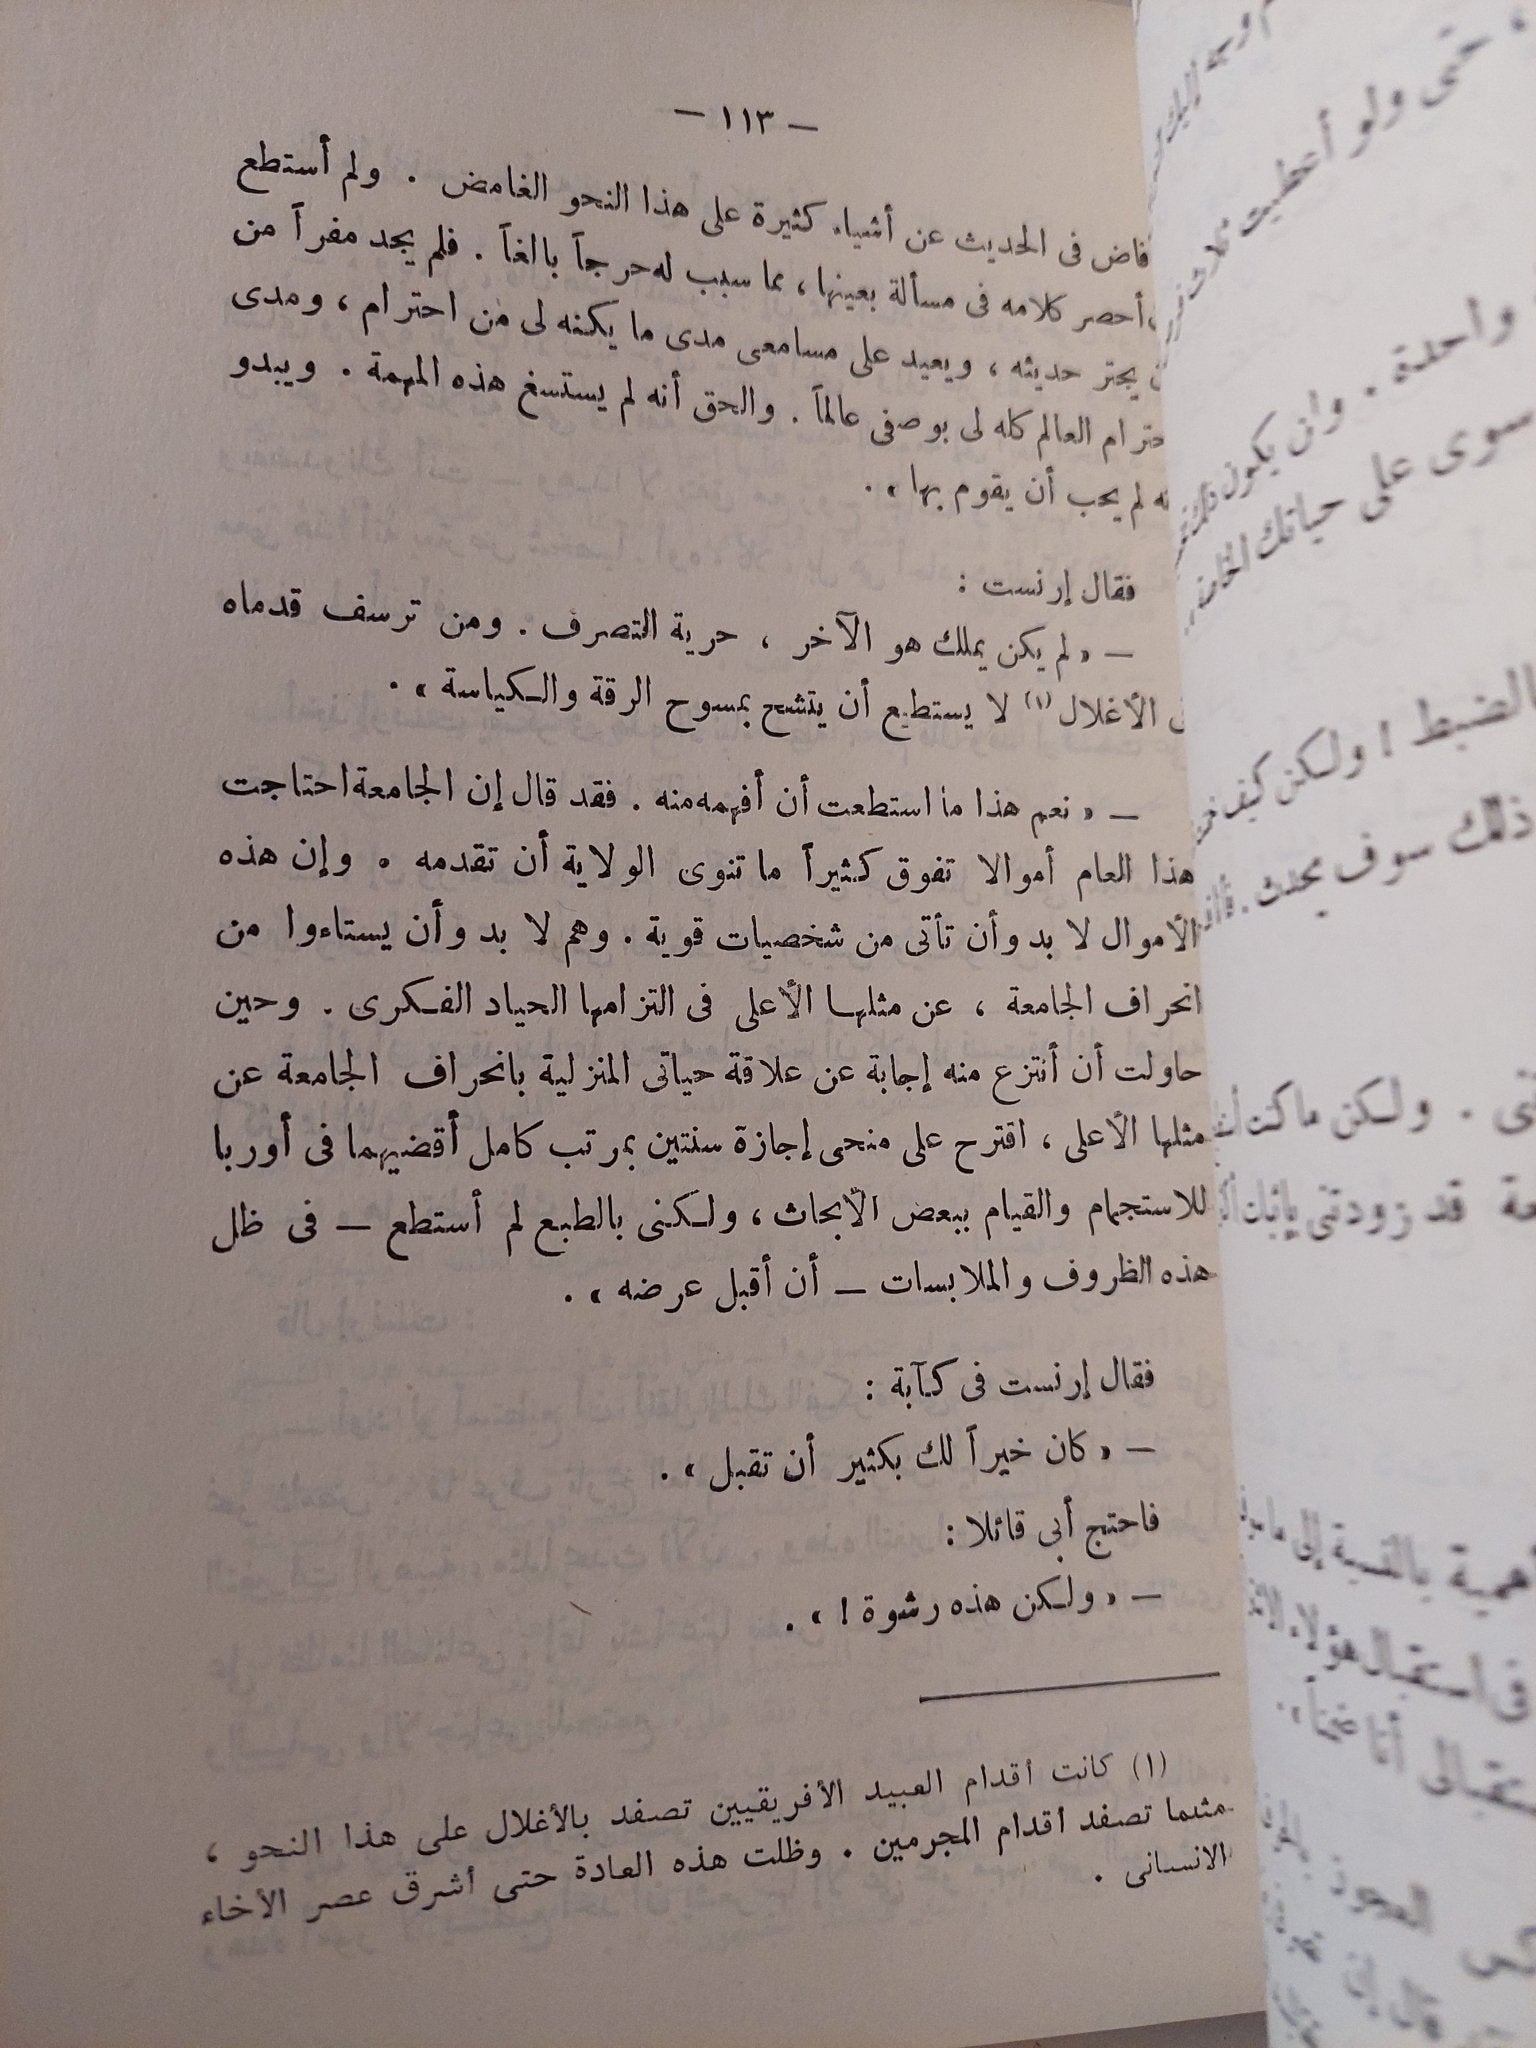 — ١١٣ —
فاض فى الحديث عن أشياء كثيرة على هذا النحو الغامض . ولم أستطع
أحصر كلامه فى مسألة بعينها ، مما سبب له حرجاً بالغاً . فلم يجد مفراً من
يجتر حديثه ، ويعيد على مسامعى مدى ما يكنه لى من احترام ، ومدى
العالم كله لى بوصفى عالماً . والحق أنه لم يستسغ هذه المهمة . ويبدو
لم يحب أن يقوم بها » .
فقال إرنست :
— « لم يكن يملك هو الآخر ، حرية التصرف . ومن ترسف قدماه
الأغلال (١) لا يستطيع أن يتشح بمسوح الرقة والكياسة » .
— « نعم هذا ما استطعت أن أفهمه منه . فقد قال إن الجامعة احتاجت
هذا العام أموالا تفوق كثيراً ما تنوى الولاية أن تقدمه . وإن هذه
الأموال لا بد وأن تأتى من شخصيات قوية . وهم لا بد وأن يستاءوا من
انحراف الجامعة ، عن مثلها الأعلى فى التزامها الحياد الفكرى . وحين
حاولت أن أنتزع منه إجابة عن علاقة حياتى المنزلية بانحراف الجامعة عن
مثلها الأعلى ، اقترح على منحى إجازة سنتين بمرتب كامل أقضيهما فى أوربا
للاستجمام والقيام ببعض الأبحاث ، ولكنى بالطبع لم أستطع — فى ظل
هذه الظروف والملابسات — أن أقبل عرضه » .
فقال إرنست فى كآبة :
— « كان خيراً لك بكثير أن تقبل » .
فاحتج أبى قائلا :
— « ولكن هذه رشوة ! » .
(١) كانت أقدام العبيد الأفريقيين تصفد بالأغلال على هذا النحو ،
مثلما تصفد أقدام المجرمين . وظلت هذه العادة حتى أشرق عصر الأخاء
الانسانى .
حتى ولو أعطيت ثلاث
واحدة . وان يكون ذلك
سوى على حياتك الخاصة
بالضبط ! ولكن كيف
ذلك سوف يحدث .
. ولكن ما كنت
قد زودتنى بإثبات
أهمية بالنسبة إلى ما
فى استقبال هؤلاء